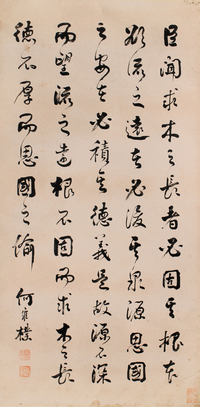 臣闻求木之長者必固其根本
欲流之遠者必浚其泉源思國
之安者必積其德義是故源不深
而望流之遠根不固而求木之長
德不厚而思國之
何維樸